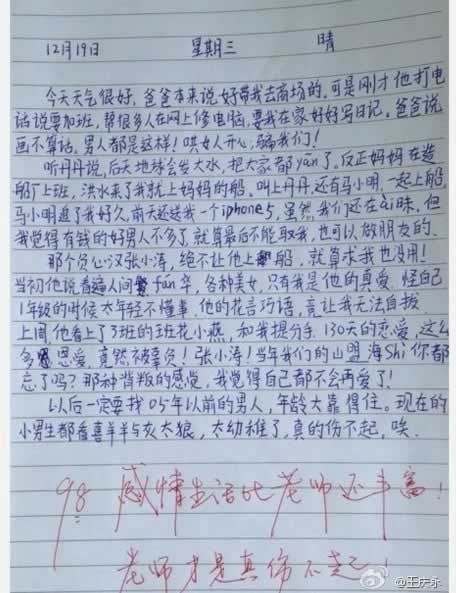 12月19日 星期三 晴
今天天气很好，爸爸本来说好带我去商场的，可是刚才他打电
话说要加班，帮很多人在网上修电脑，要我在家好好写日记。爸爸说
画不算话，男人都是这样！哄女人开心，骗我们！
听丹丹说，后天地球会发大水，把大家都yān了，反正妈妈在造
船厂上班，洪水来了我就上妈妈的船，叫上丹丹，还有马小明，一起上船，
马小明追了我好久，前天还送我一个iphone5，虽然我们还在ài昧，但
我觉得有钱的好男人不多了，就算最后不能取我，也可以做朋友的。
那个负心汉张小涛，绝不让他上船，就算求我也没用！
当初他说看遍人间fan华，各种美女，只有我是他的真爱，怪自己
1年级的时候太年轻不懂事，他的花言巧语，竟让我无法自拔，
上周，他看上了3班的班花小燕，和我提分手，130天的恋爱，这么
多恩爱，竟然被辜负！张小涛！当年我们的山盟海Shi你都
忘了吗？那种背叛的感觉，我觉得自己都不会再爱了！
以后一定要找05年以前的男人，年龄大靠得住。现在的
小男生都看喜羊羊与灰太狼，太幼稚了，真的伤不起，唉。
98 感情生活比老师还丰富！
老师才是真伤不起！
@王庆永